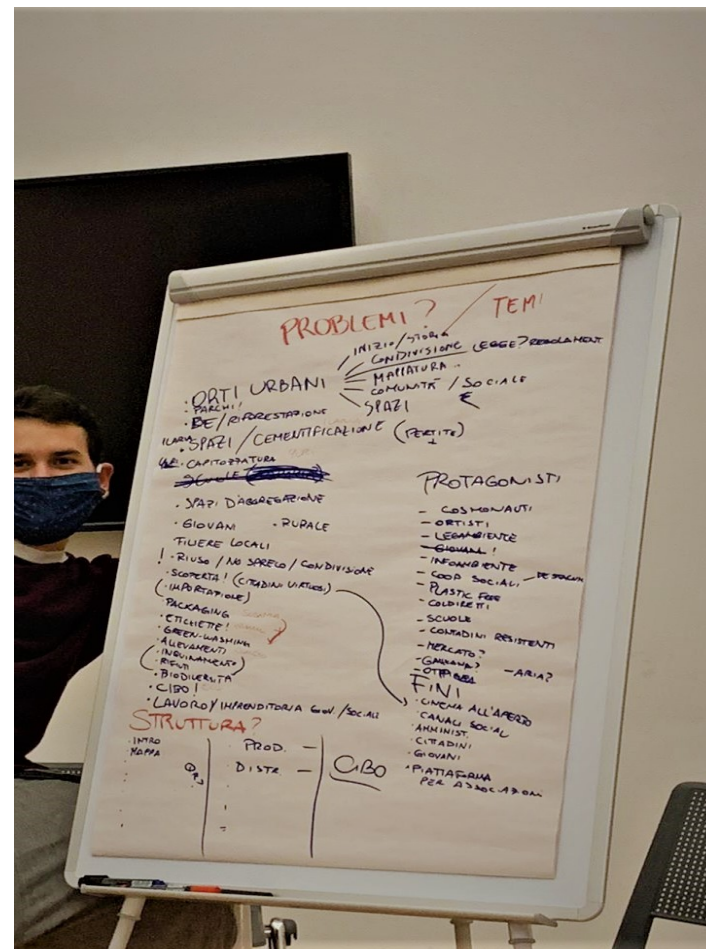 PROBLEMI? / TEMI
INIZIO/STORIA
CONDIVISIONE LEGGE? REGOLAMENT
MAPPATURA
COMUNITÀ / SOCIALE
SPAZI €
· ORTI URBANI
· PARCHI!
· BE/RIFORESTAZIONE
ILARIA · SPAZI / CEMENTIFICAZIONE (PERTITE)
· CAPITOZZATURA
SCUOLE
· SPAZI D'AGGREGAZIONE
· GIOVANI · RURALE
FILIERE LOCALI
! · RIUSO / NO SPRECO / CONDIVISIONE
· SCOPERTA! (CITTADINI VIRTUOSI)
(· IMPORTAZIONE)
PACKAGING
· ETICHETTE!
· GREEN-WASHING
· ALLEVAMENTI
(· INQUINAMENTO)
· RIFIUTI
· BIODIVERSITÀ
· CIBO!
· LAVORO/IMPRENDITORIA GIOV/SOCIALI
PROTAGONISTI
- COSMONAUTI
- ORTISTI
- LEGAMBIENTE
- GIOVANI!
- INFOAMBIENTE
- COOP SOCIALI
- PLASTIC FREE
- COLDIRETTI
- SCUOLE
- CONTADINI RESISTENTI
- MERCATO?
- ARIA?
FINI
· CINEMA ALL'APERTO
· CANALI SOCIAL
· AMMINIST.
· CITTADINI
· GIOVANI
· PIATTAFORMA
PER ASSOCIAZIONI
STRUTTURA?
· INTRO
· MAPPA
PROD. -
DISTR. -
CIBO